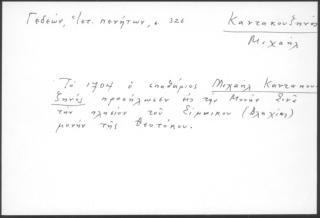 Γεδεών, Ἱστ. πενήτων, σ. 326
Καντακουζηνός
Μιχαήλ
Τὸ 1704 ὁ σπαθάριος Μιχαὴλ Καντακου-
ζηνός προσήλωσεν εἰς τὴν Μονὴν Σινᾶ
τὴν πλησίον τοῦ Ῥιμνικου (Βλαχίας)
μονὴν τῆς Θεοτόκου.